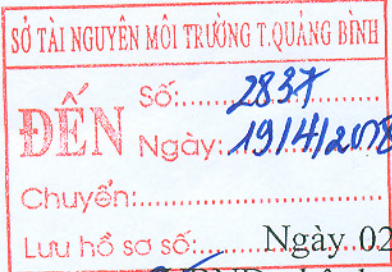 SỞ TÀI NGUYÊN MÔI TRƯỜNG T.QUẢNG BÌNH
ĐẾN
Số: 2837
Ngày: 19/4/2018
Chuyển:
Lưu hồ sơ số:
Ngày 02